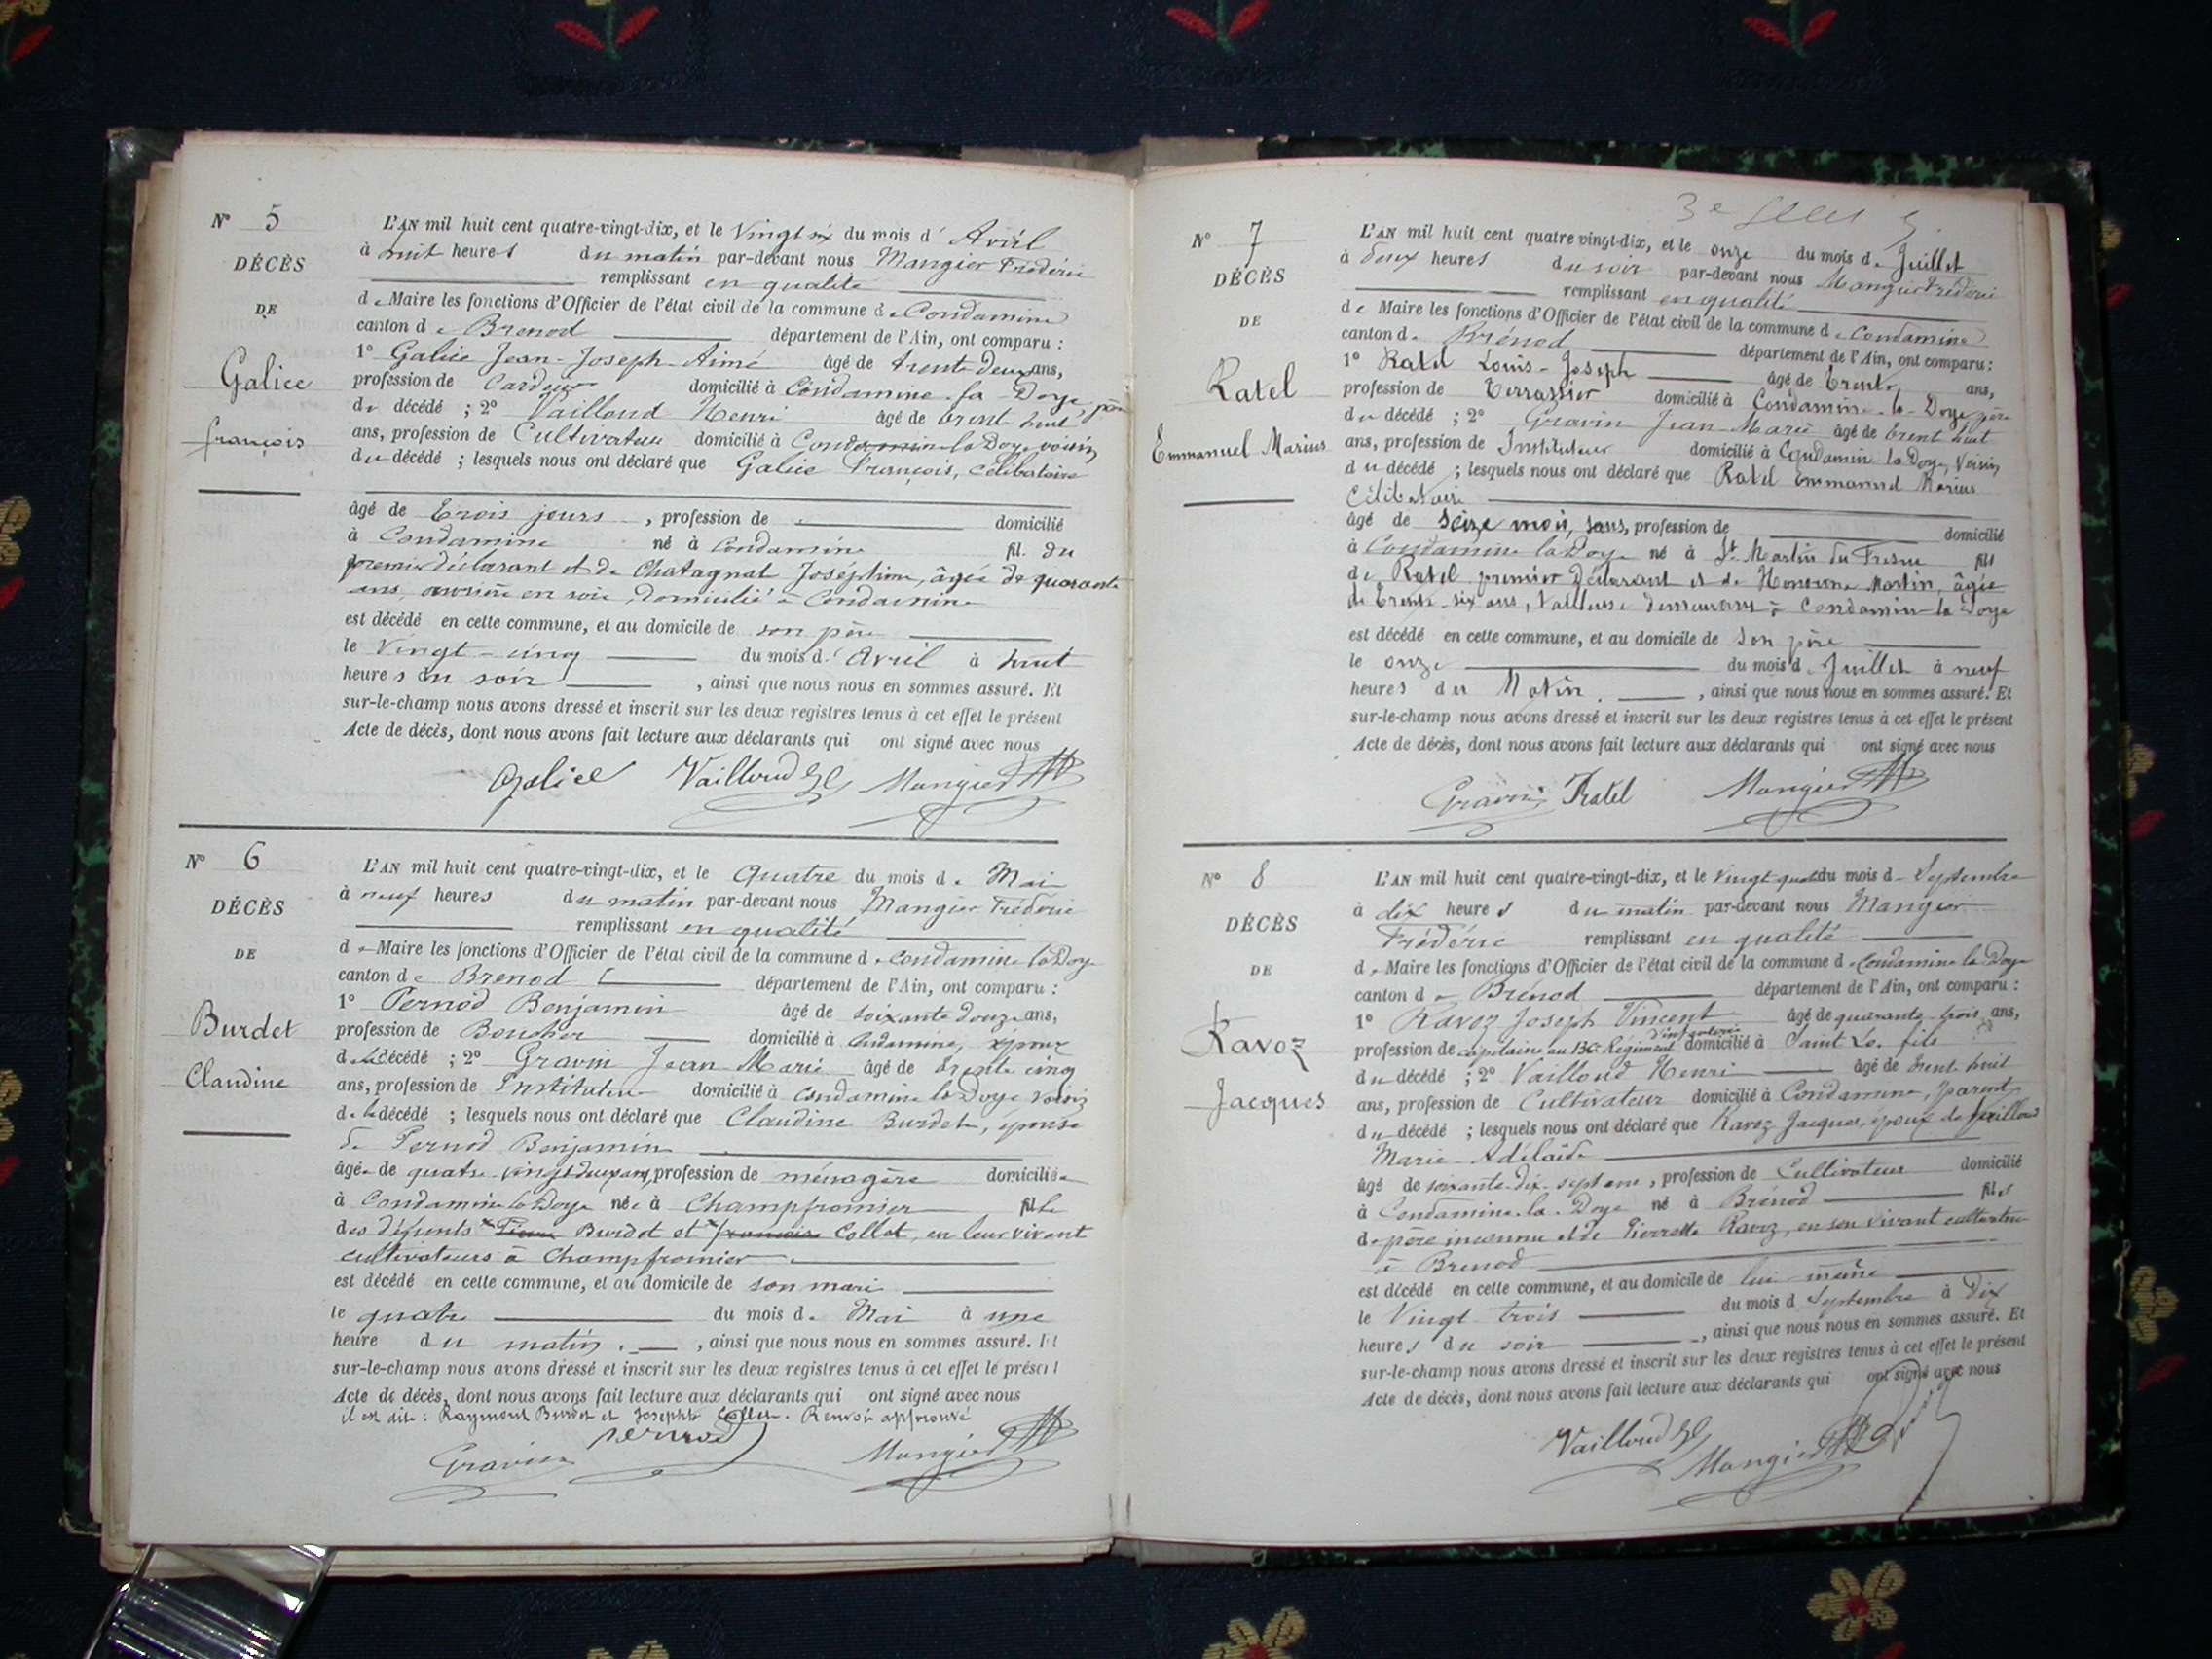 N° 5
DÉCÈS
DE
Galice
françois
L'AN mil huit cent quatre-vingt-dix, et le Vingt six du mois d' Avril
à huit heures du matin par-devant nous Mangier Frédéric
remplissant en qualité
de Maire les fonctions d'Officier de l'état civil de la commune de Condamine
canton de Brenod département de l'Ain, ont comparu :
1° Galice Jean-Joseph-Aimé âgé de trente deux ans,
profession de Cardeur domicilié à Condamine-la-Doye, père
du décédé ; 2° Vailloud Henri âgé de trent huit
ans, profession de Cultivateur domicilié à Condamine la Doye voisin
du décédé ; lesquels nous ont déclaré que Galice François, célibataire
âgé de Trois jours, profession de domicilié
à Condamine né à Condamine fil. du
premier déclarant et de Chatagnat Joséphine, âgée de quarante
ans, ouvrière en soie, domicilié à Condamine
est décédé en cette commune, et au domicile de son père
le Vingt-cinq du mois d'Avril à huit
heures du soir, ainsi que nous nous en sommes assuré. Et
sur-le-champ nous avons dressé et inscrit sur les deux registres tenus à cet effet le présent
Acte de décès, dont nous avons fait lecture aux déclarants qui ont signé avec nous
Galice Vailloud Mangier
N° 6
DÉCÈS
DE
Burdet
Claudine
L'AN mil huit cent quatre-vingt-dix, et le Quatre du mois de Mai
à neuf heures du matin par-devant nous Mangier Frédéric
remplissant en qualité
de Maire les fonctions d'Officier de l'état civil de la commune de Condamine la Doye
canton de Brenod département de l'Ain, ont comparu :
1° Pernod Benjamin âgé de soixante douze ans,
profession de Boucher domicilié à Condamine, époux
de la décédé ; 2° Gravin Jean Marie âgé de trente cinq
ans, profession de Instituteur domicilié à Condamine la Doye voisin
de la décédé ; lesquels nous ont déclaré que Claudine Burdet, épouse
de Pernod Benjamin
âgée de quatre vingt deux ans, profession de ménagère domiciliée
à Condamine la Doye née à Champfromier fille
des défunts Burdet et françoise Collet, en leur vivant
cultivateurs à Champfromier
est décédé en cette commune, et au domicile de son mari
le quatre du mois de Mai à une
heure du matin, ainsi que nous nous en sommes assuré. Et
sur-le-champ nous avons dressé et inscrit sur les deux registres tenus à cet effet le présent
Acte de décès, dont nous avons fait lecture aux déclarants qui ont signé avec nous
il est dit : Raymond Burdet et Josephte Collet. Renvoi approuvé
Gravin Pernod Mangier
3e
N° 7
DÉCÈS
DE
Ratel
Emmanuel Marius
L'AN mil huit cent quatre vingt-dix, et le onze du mois de Juillet
à deux heures du soir par-devant nous Mangier Frédéric
remplissant en qualité
de Maire les fonctions d'Officier de l'état civil de la commune de Condamine
canton de Brénod département de l'Ain, ont comparu :
1° Ratel Louis-Joseph âgé de trente ans,
profession de Terrassier domicilié à Condamine-la-Doye père
du décédé ; 2° Gravin Jean-Marie âgé de trent huit
ans, profession de Instituteur domicilié à Condamine la Doye, Voisin
du décédé ; lesquels nous ont déclaré que Ratel Emmanuel Marius
Célibataire
âgé de seize mois, sans, profession de domicilié
à Condamine la Doye né à St Martin du Fresne fils
de Ratel premier déclarant et de Honorine Martin, âgée
de trente-six ans, tailleuse demeurant à Condamine-la Doye
est décédé en cette commune, et au domicile de son père
le onze du mois de Juillet à neuf
heures du Matin, ainsi que nous nous en sommes assuré. Et
sur-le-champ nous avons dressé et inscrit sur les deux registres tenus à cet effet le présent
Acte de décès, dont nous avons fait lecture aux déclarants qui ont signé avec nous
Gravin Ratel Mangier
N° 8
DÉCÈS
DE
Ravoz
Jacques
L'AN mil huit cent quatre-vingt-dix, et le Vingt quatre du mois de Septembre
à dix heures du matin par-devant nous Mangier
Frédéric remplissant en qualité
de Maire les fonctions d'Officier de l'état civil de la commune de Condamine la Doye
canton de Brénod département de l'Ain, ont comparu :
1° Ravoz Joseph Vincent âgé de quarante-trois ans,
d'infanterie
profession de capitaine au 136e Régiment domicilié à Saint Lô. fils
du décédé ; 2° Vailloud Henri âgé de trent huit
ans, profession de Cultivateur domicilié à Condamine, parent
du décédé ; lesquels nous ont déclaré que Ravoz Jacques, époux de Vailloud
Marie Adélaïde
âgé de soixante-dix-sept ans, profession de Cultivateur domicilié
à Condamine-la-Doye né à Brénod fils
de père inconnu et de Pierrette Ravoz, en son vivant cultivatrice
à Brenod
est décédé en cette commune, et au domicile de lui-même
le Vingt trois du mois d Septembre à Dix
heures du soir, ainsi que nous nous en sommes assuré. Et
sur-le-champ nous avons dressé et inscrit sur les deux registres tenus à cet effet le présent
Acte de décès, dont nous avons fait lecture aux déclarants qui ont signé avec nous
Vailloud Mangier